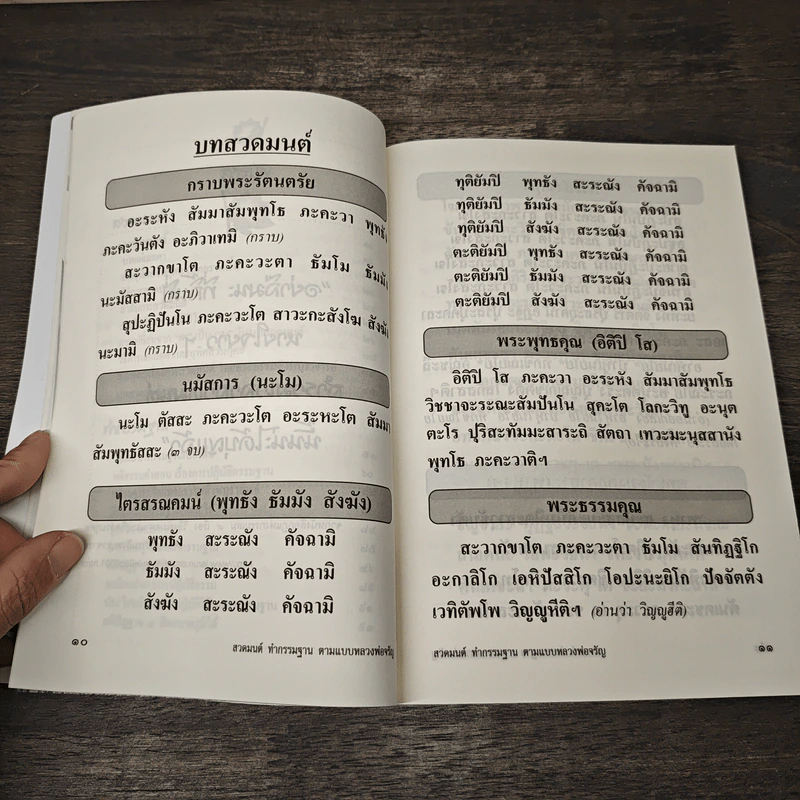 บทสวดมนต์
กราบพระรัตนตรัย
อะระหัง สัมมาสัมพุทโธ ภะคะวา พุทธัง
ภะคะวันตัง อะภิวาเทมิ (กราบ)
สะวากขาโต ภะคะวะตา ธัมโม ธัมมัง
นะมัสสามิ (กราบ)
สุปะฏิปันโน ภะคะวะโต สาวะกะสังโฆ สังฆัง
นะมามิ (กราบ)
นมัสการ (นะโม)
นะโม ตัสสะ ภะคะวะโต อะระหะโต สัมมา
สัมพุทธัสสะ (๓ จบ)
ไตรสรณคมน์ (พุทธัง ธัมมัง สังฆัง)
พุทธัง สะระณัง คัจฉามิ
ธัมมัง สะระณัง คัจฉามิ
สังฆัง สะระณัง คัจฉามิ
๑๐
สวดมนต์ ทำกรรมฐาน ตามแบบหลวงพ่อจรัญ
ทุติยัมปิ พุทธัง สะระณัง คัจฉามิ
ทุติยัมปิ ธัมมัง สะระณัง คัจฉามิ
ทุติยัมปิ สังฆัง สะระณัง คัจฉามิ
ตะติยัมปิ พุทธัง สะระณัง คัจฉามิ
ตะติยัมปิ ธัมมัง สะระณัง คัจฉามิ
ตะติยัมปิ สังฆัง สะระณัง คัจฉามิ
พระพุทธคุณ (อิติปิ โส)
อิติปิ โส ภะคะวา อะระหัง สัมมาสัมพุทโธ
วิชชาจะระณะสัมปันโน สุคะโต โลกะวิทู อะนุต
ตะโร ปุริสะทัมมะสาระถิ สัตถา เทวะมะนุสสานัง
พุทโธ ภะคะวาติฯ
พระธรรมคุณ
สะวากขาโต ภะคะวะตา ธัมโม สันทิฏฐิโก
อะกาลิโก เอหิปัสสิโก โอปะนะยิโก ปัจจัตตัง
เวทิตัพโพ วิญญูหีติฯ (อ่านว่า วิญญูฮีติ)
สวดมนต์ ทำกรรมฐาน ตามแบบหลวงพ่อจรัญ
๑๑